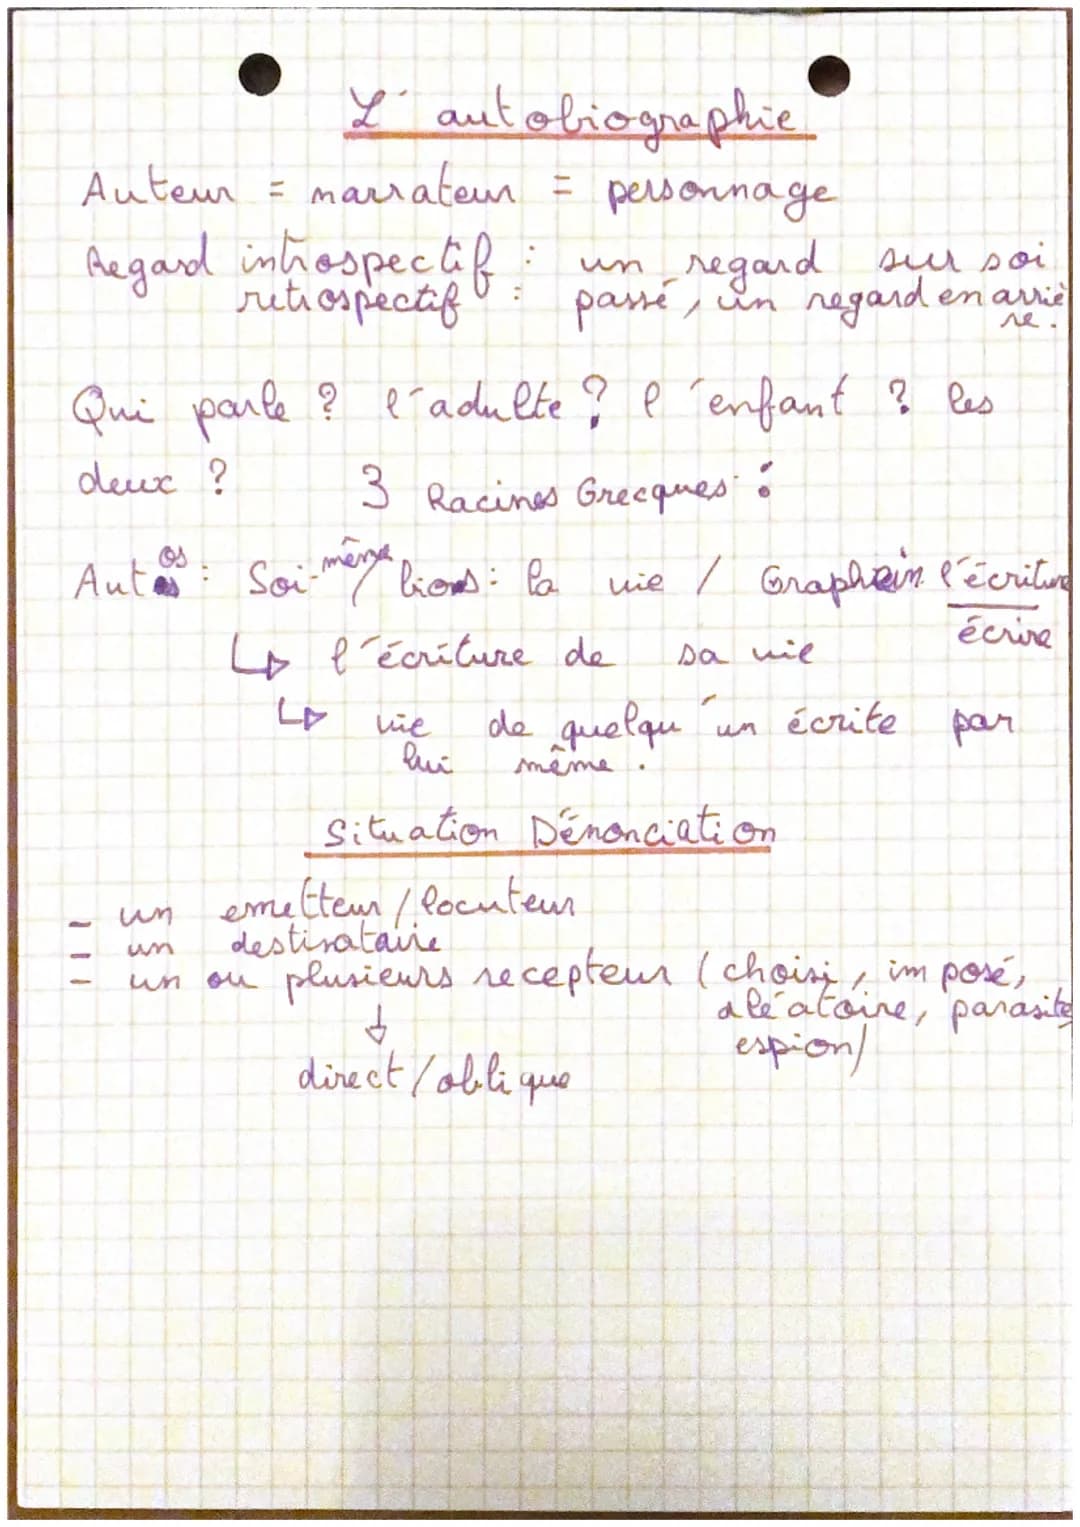 L'autobiographie
Auteur = narrateur = personnage
Regard introspectif : un regard sur soi
retrospectif : passé, un regard en arriè
re.
Qui parle ? l'adulte ? l'enfant ? les
deux ? 3 Racines Grecques :
Autos : Soi-même / bios : la vie / Graphein l'écriture
écrire
↳ l'écriture de sa vie
↳ vie de quelqu'un écrite par
lui même.
Situation Dénonciation
- un emetteur / locuteur
- un destinataire
- un ou plusieurs recepteur ( choisi, imposé,
aléatoire, parasite
espion)
↓
direct / oblique